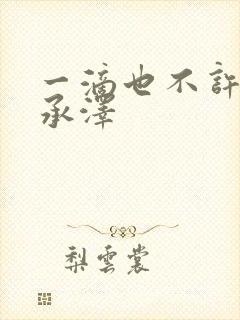 一滴也不許
承澤
梨雲裳